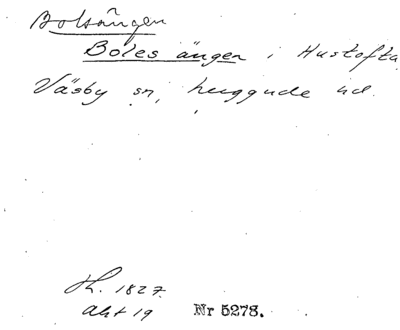 Bolsängen
Boles ängen i Hustofta
Väsby sn, Luggude hd.
Sk. 1827.
Akt 19 Nr 5278.